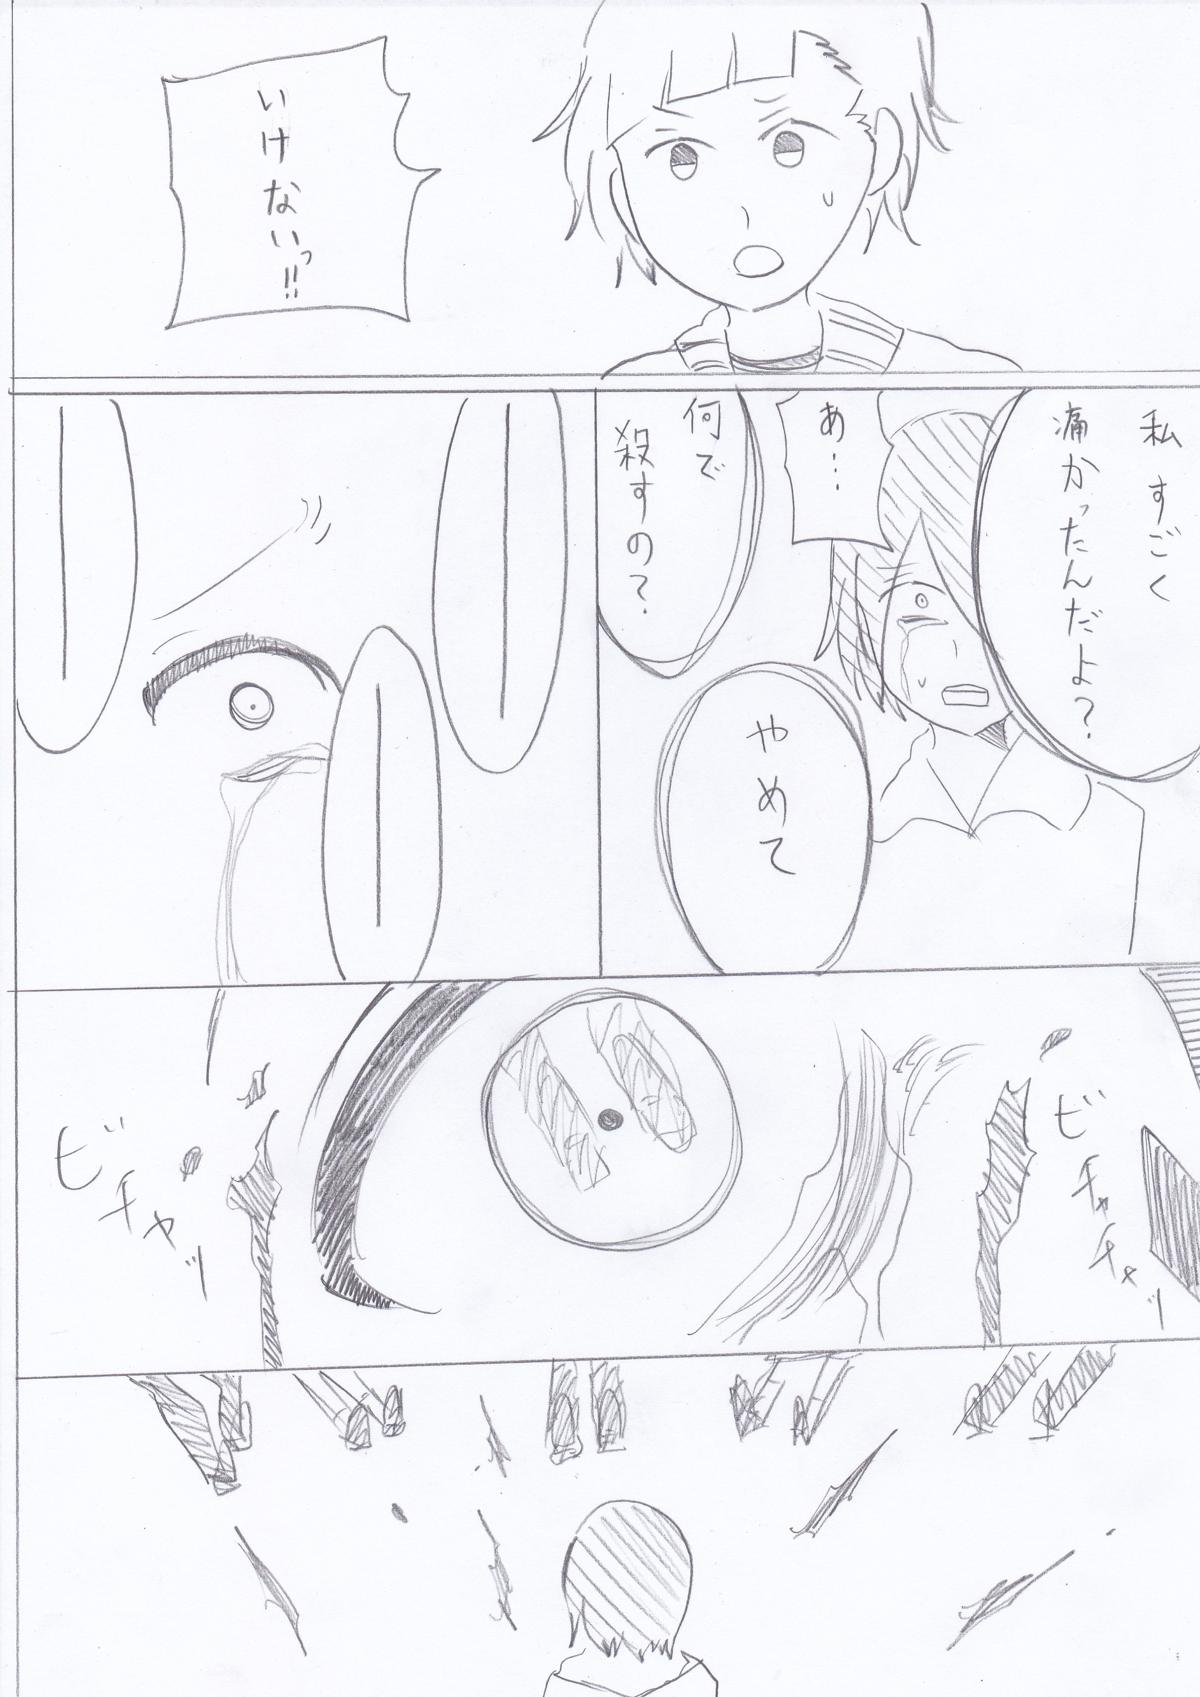 いけないっ!!
私すごく
痛かったんだよ?
あ…
何で
殺すの?
やめて
ビチャチャッ
ビチャッ